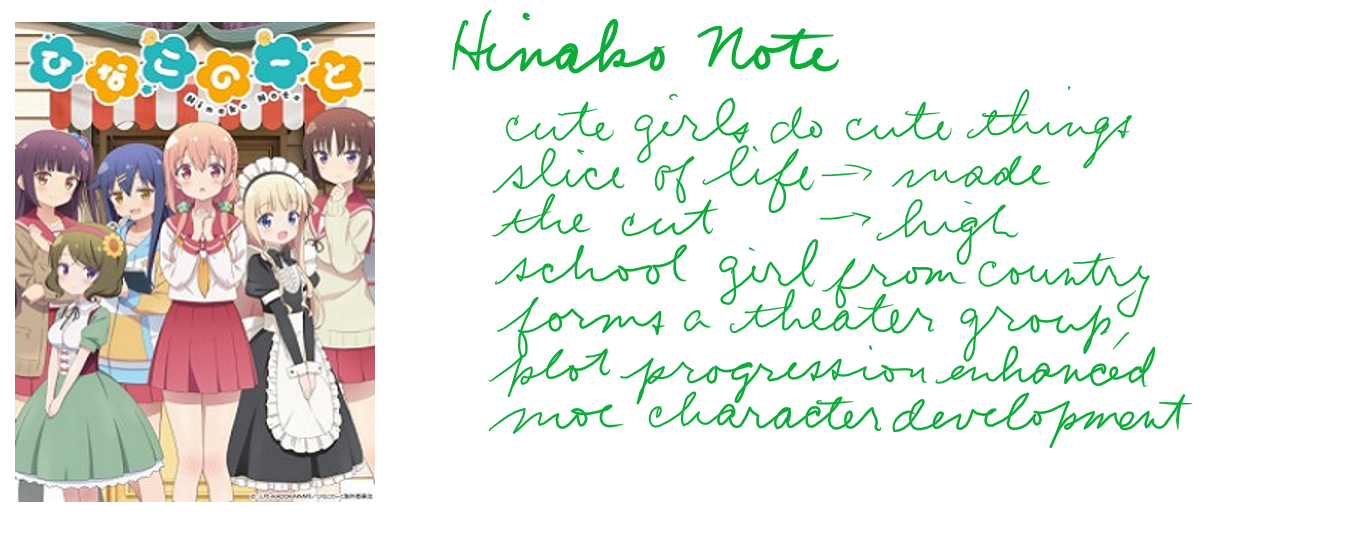 ひなこのーと
Hinako Note
Hinako Note
cute girls do cute things
slice of life → made
the cut → high
school girl from country
forms a theater group,
plot progression enhanced
moe character development